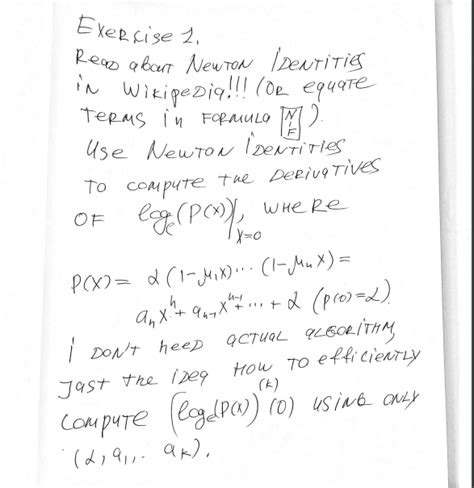 Exercise 1.
Read about Newton Identities
in Wikipedia!!! (or equate
terms in formula [N-F]).
Use Newton Identities
to compute the derivatives
of log_e(P(x))|_{x=0}, where
P(x) = α(1-μ_1x)⋯(1-μ_nx) =
a_n x^n + a_{n-1} x^{n-1} + ⋯ + α (P(0)=α).
i don't need actual algorithm,
Just the ideq how to efficiently
compute (log_e(P(x))^{(k)}(0) using only
(α, a_1, .. a_k).